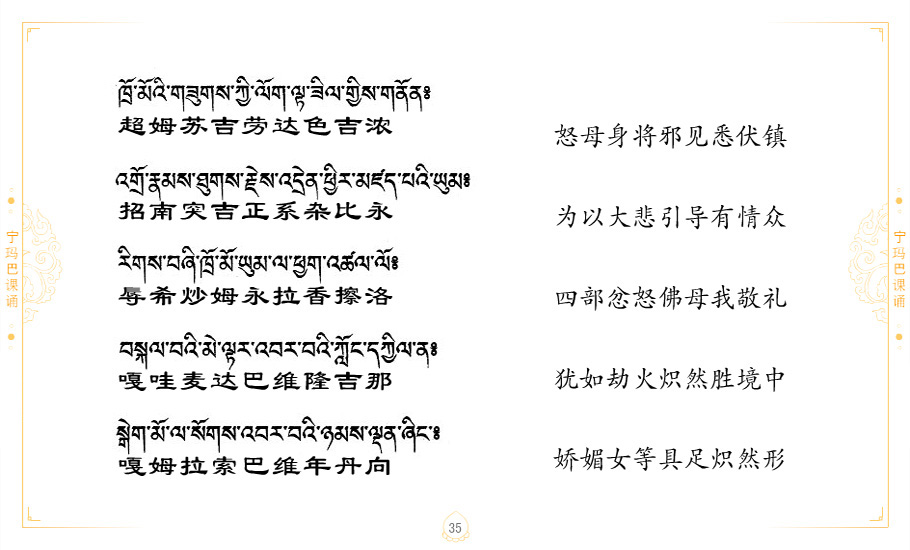 ཁྲོ་མོའི་གཟུགས་ཀྱི་ལོག་ལྟ་ཟིལ་གྱིས་གནོན༔
超姆苏吉劳达色吉浓
怒母身将邪见悉伏镇
འགྲོ་རྣམས་ཐུགས་རྗེས་འདྲེན་ཕྱིར་མཛད་པའི་ཡུམ༔
招南突吉正系杂比永
为以大悲引导有情众
རིགས་བཞི་ཁྲོ་མོ་ཡུམ་ལ་ཕྱག་འཚལ་ལོ༔
辱希炒姆永拉香擦洛
四部忿怒佛母我敬礼
བསྐལ་བའི་མེ་ལྟར་འབར་བའི་ཀློང་དཀྱིལ་ན༔
嘎哇麦达巴维隆吉那
犹如劫火炽然胜境中
སྒེག་མོ་ལ་སོགས་འབར་བའི་ཉམས་ལྡན་ཞིང་༔
嘎姆拉索巴维年丹向
娇媚女等具足炽然形
宁玛巴课诵
宁玛巴课诵
35